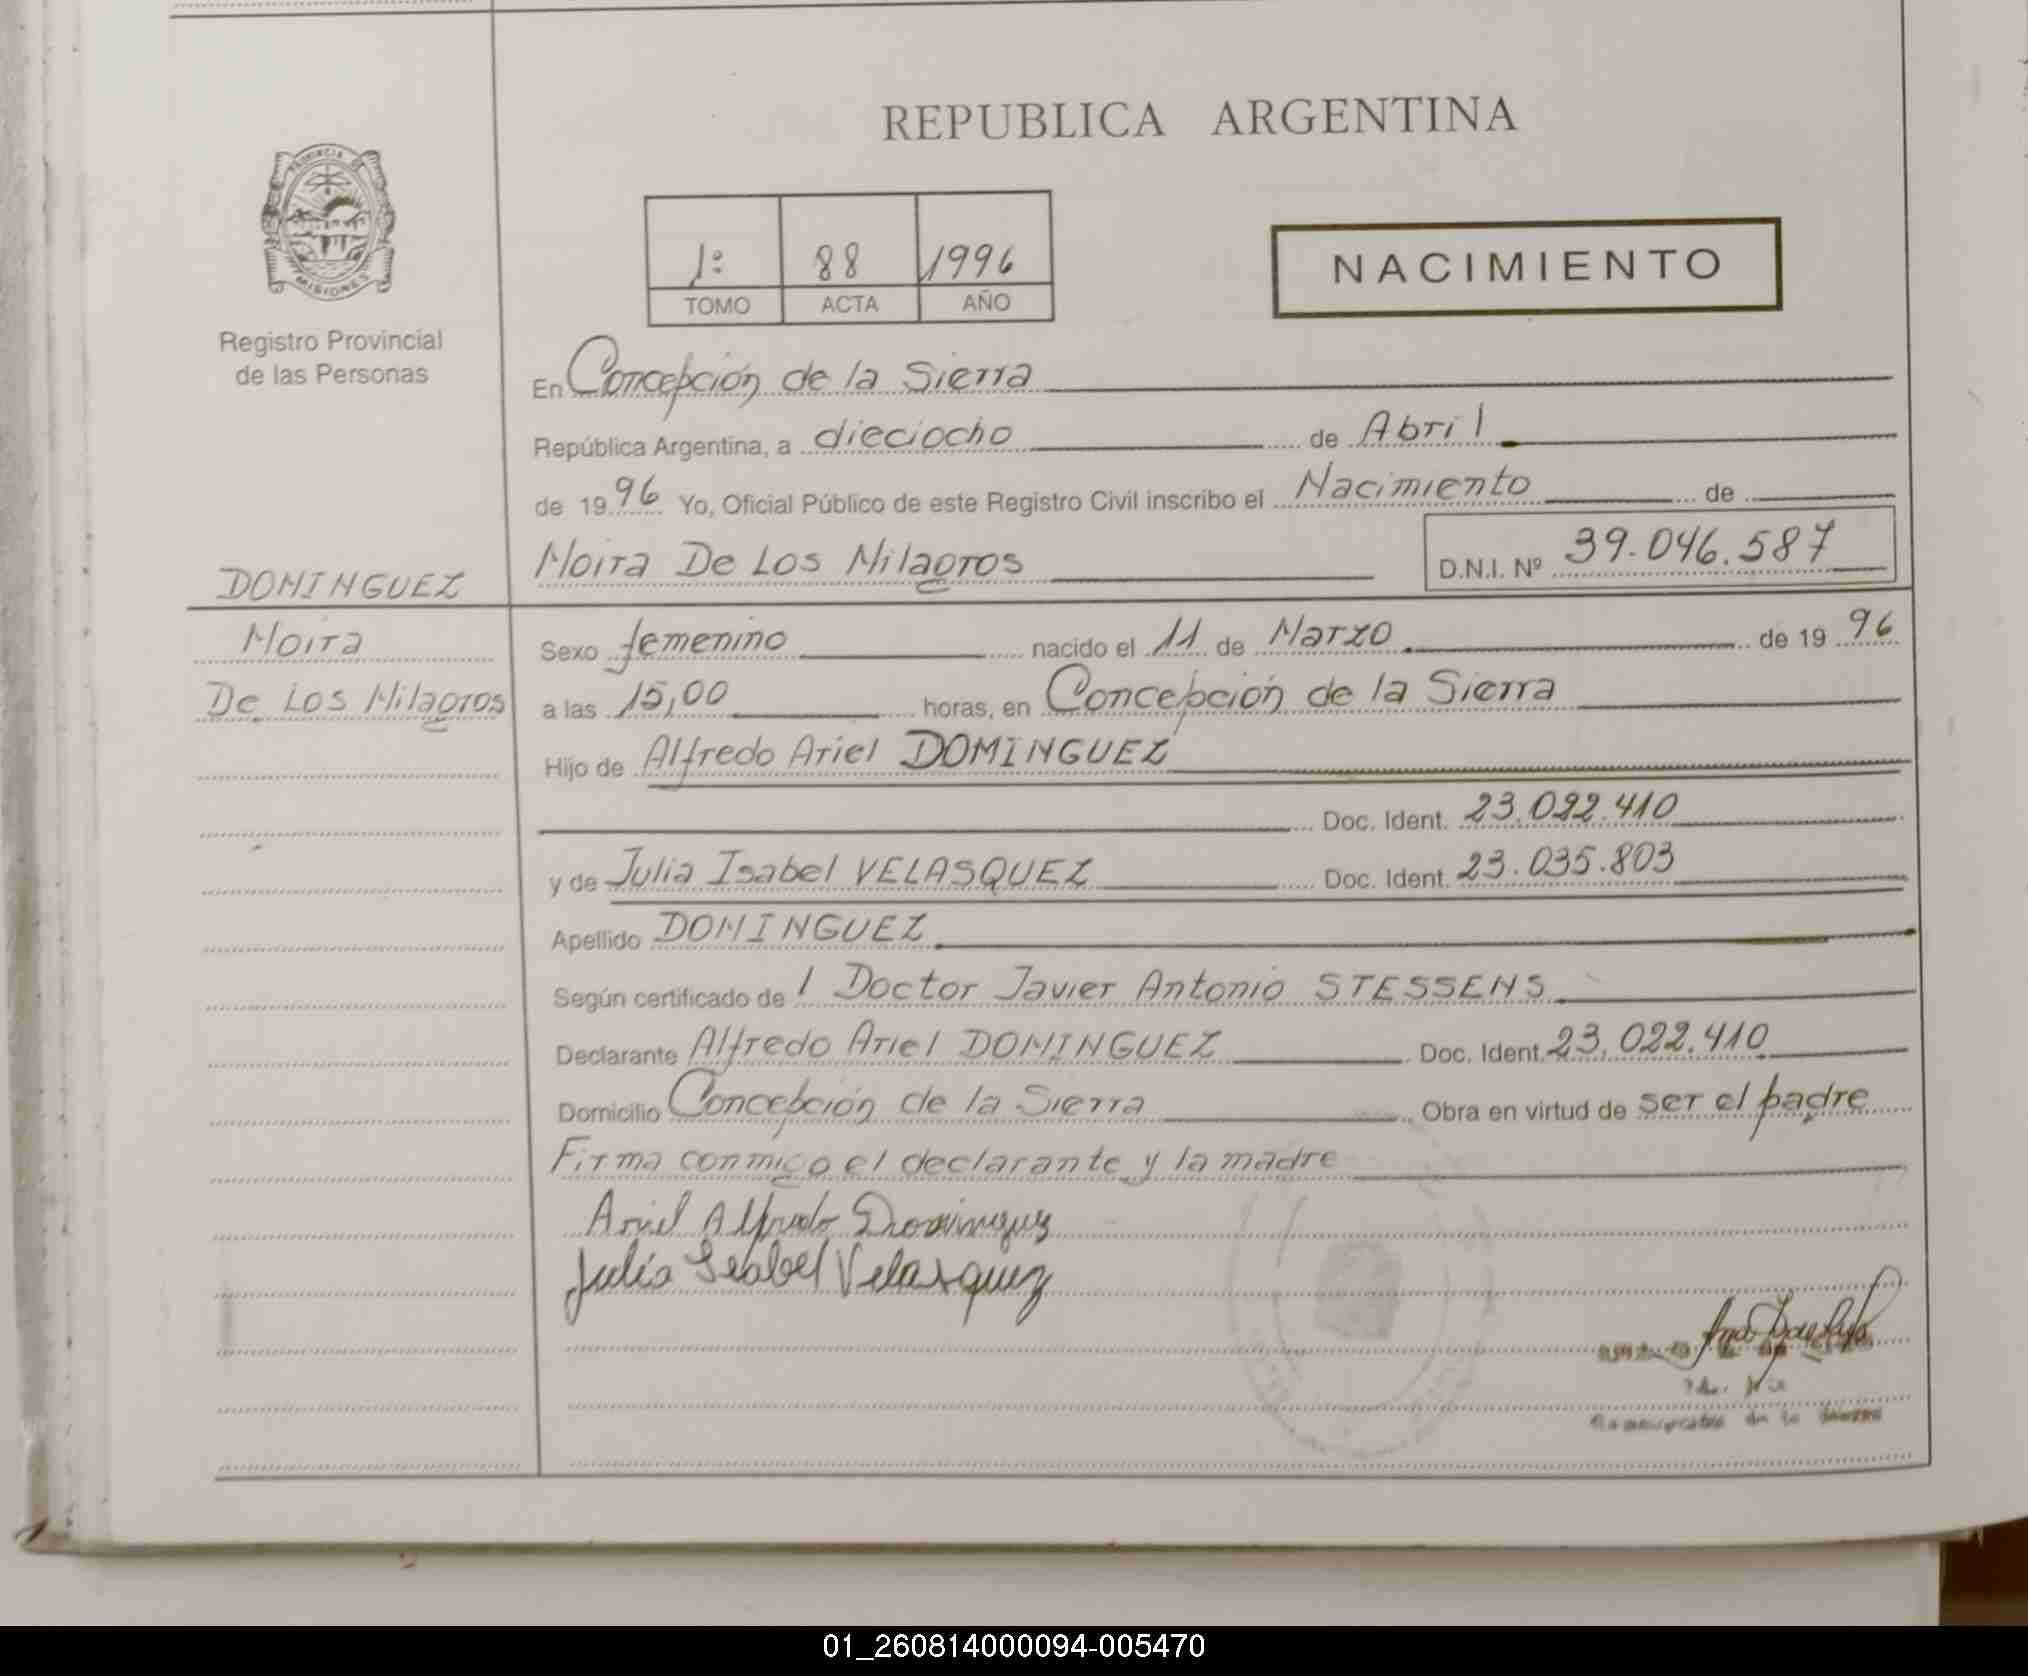 REPUBLICA ARGENTINA
PROVINCIA DE
MISIONES
Registro Provincial
de las Personas
1: 88 1996
TOMO ACTA AÑO
NACIMIENTO
En Concepción de la Sierra
República Argentina, a dieciocho de Abril
de 19 96 Yo, Oficial Público de este Registro Civil inscribo el Nacimiento de
DOMINGUEZ
Moira De Los Milagros
D.N.I. Nº 39.046.587
Moira
De Los Milagros
Sexo femenino nacido el 11 de Marzo de 19 96
a las 15,00 horas, en Concepción de la Sierra
Hijo de Alfredo Ariel DOMINGUEZ
Doc. Ident. 23.022.410
y de Julia Isabel VELASQUEZ Doc. Ident. 23.035.803
Apellido DOMINGUEZ
Según certificado de l Doctor Javier Antonio STESSENS
Declarante Alfredo Ariel DOMINGUEZ Doc. Ident. 23.022.410
Domicilio Concepción de la Sierra Obra en virtud de ser el padre
Firma conmigo el declarante y la madre
Ariel Alfredo Dominguez
Julia Isabel Velasquez
01_260814000094-005470